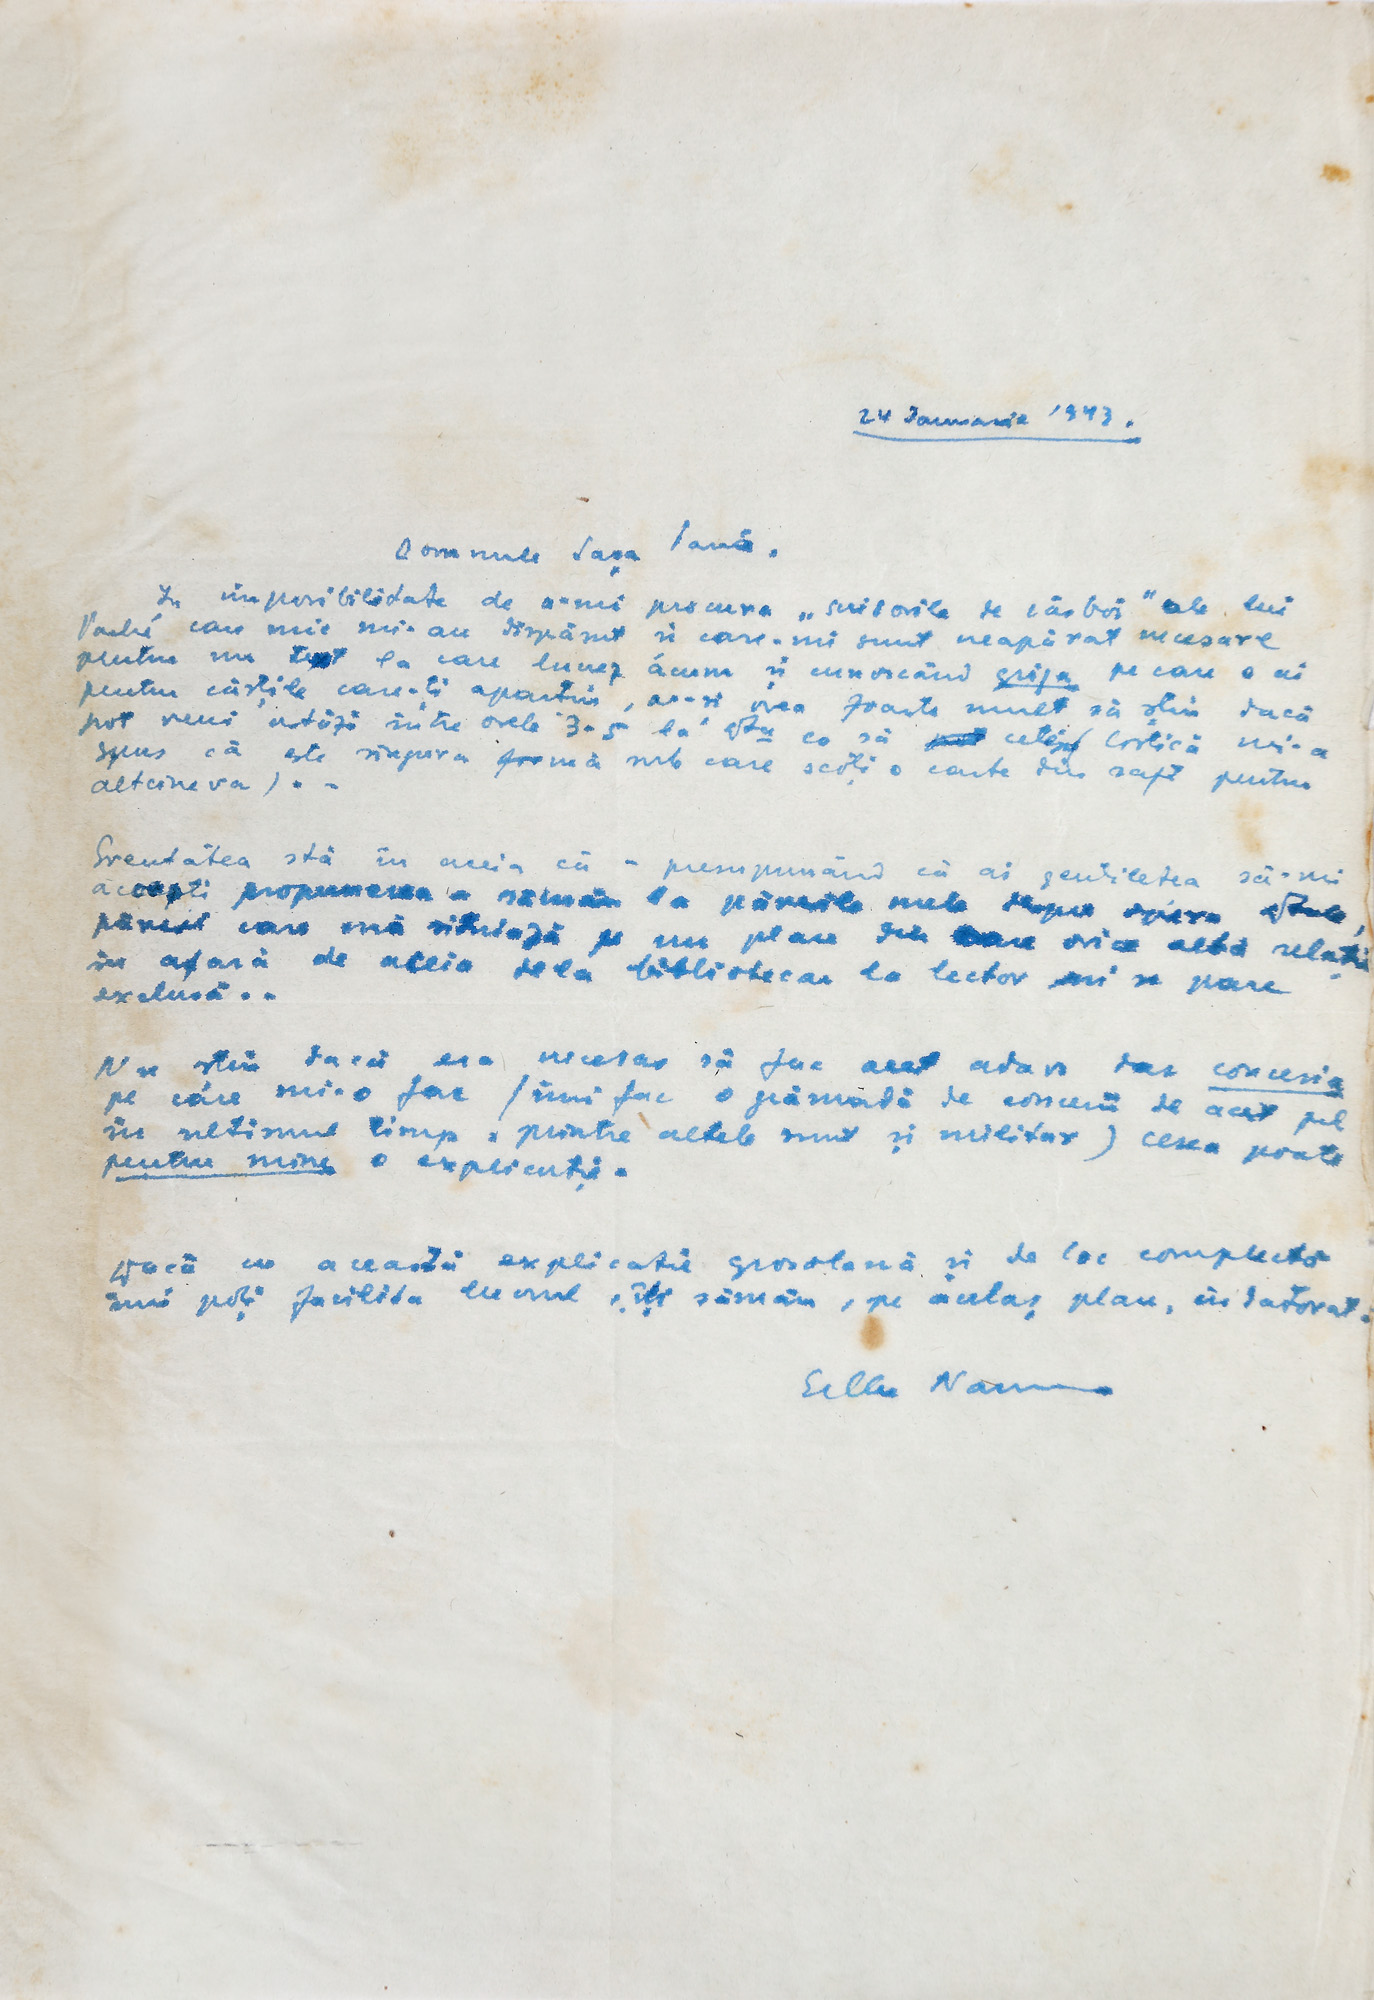 24 Ianuarie 1943.
Domnule Sașa Pană.
In imposibilitate de a-mi procura „scrisorile de răsboi" ale lui
Vaché care mie mi-au dispărut și care-mi sunt neapărat necesare
pentru un text la care lucrez acum și cunoscând grija pe care o ai
pentru cărțile care-ți aparțin, aș vrea foarte mult să știu dacă
pot veni astăzi între orele 3-5 la dta ca să citesc (Costică mi-a
spus că este singura formă sub care scoți o carte din raft pentru
altcineva). -
Greutatea stă în aceia că - presupunând că ai gentilețea să-mi
accepți propunerea - rămân la părerile mele despre opera dtale,
păreri care mă situiază pe un plan din care orice altă relație
în afară de aceia dela bibliotecar la lector mi se pare
exclusă..
Nu știu dacă era necesar să fac acest adaos dar concesia
pe care mi-o fac (îmi fac o grămadă de concesii de acest fel
în ultimul timp, printre altele sunt și militar) cerea poate
pentru mine o explicație.
Dacă cu această explicație grosolană și de loc complectă
îmi poți facilita lucrul, îți rămân, pe acelaș plan, îndatorat.
Gellu Naum